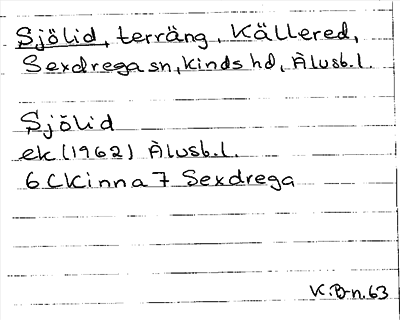 Sjölid, terräng, Källered,
Sexdrega sn, Kinds hd, Älvsb. l.
Sjölid
ek (1962) Älvsb. l.
6 C Kinna 7 Sexdrega
K. B-n. 63